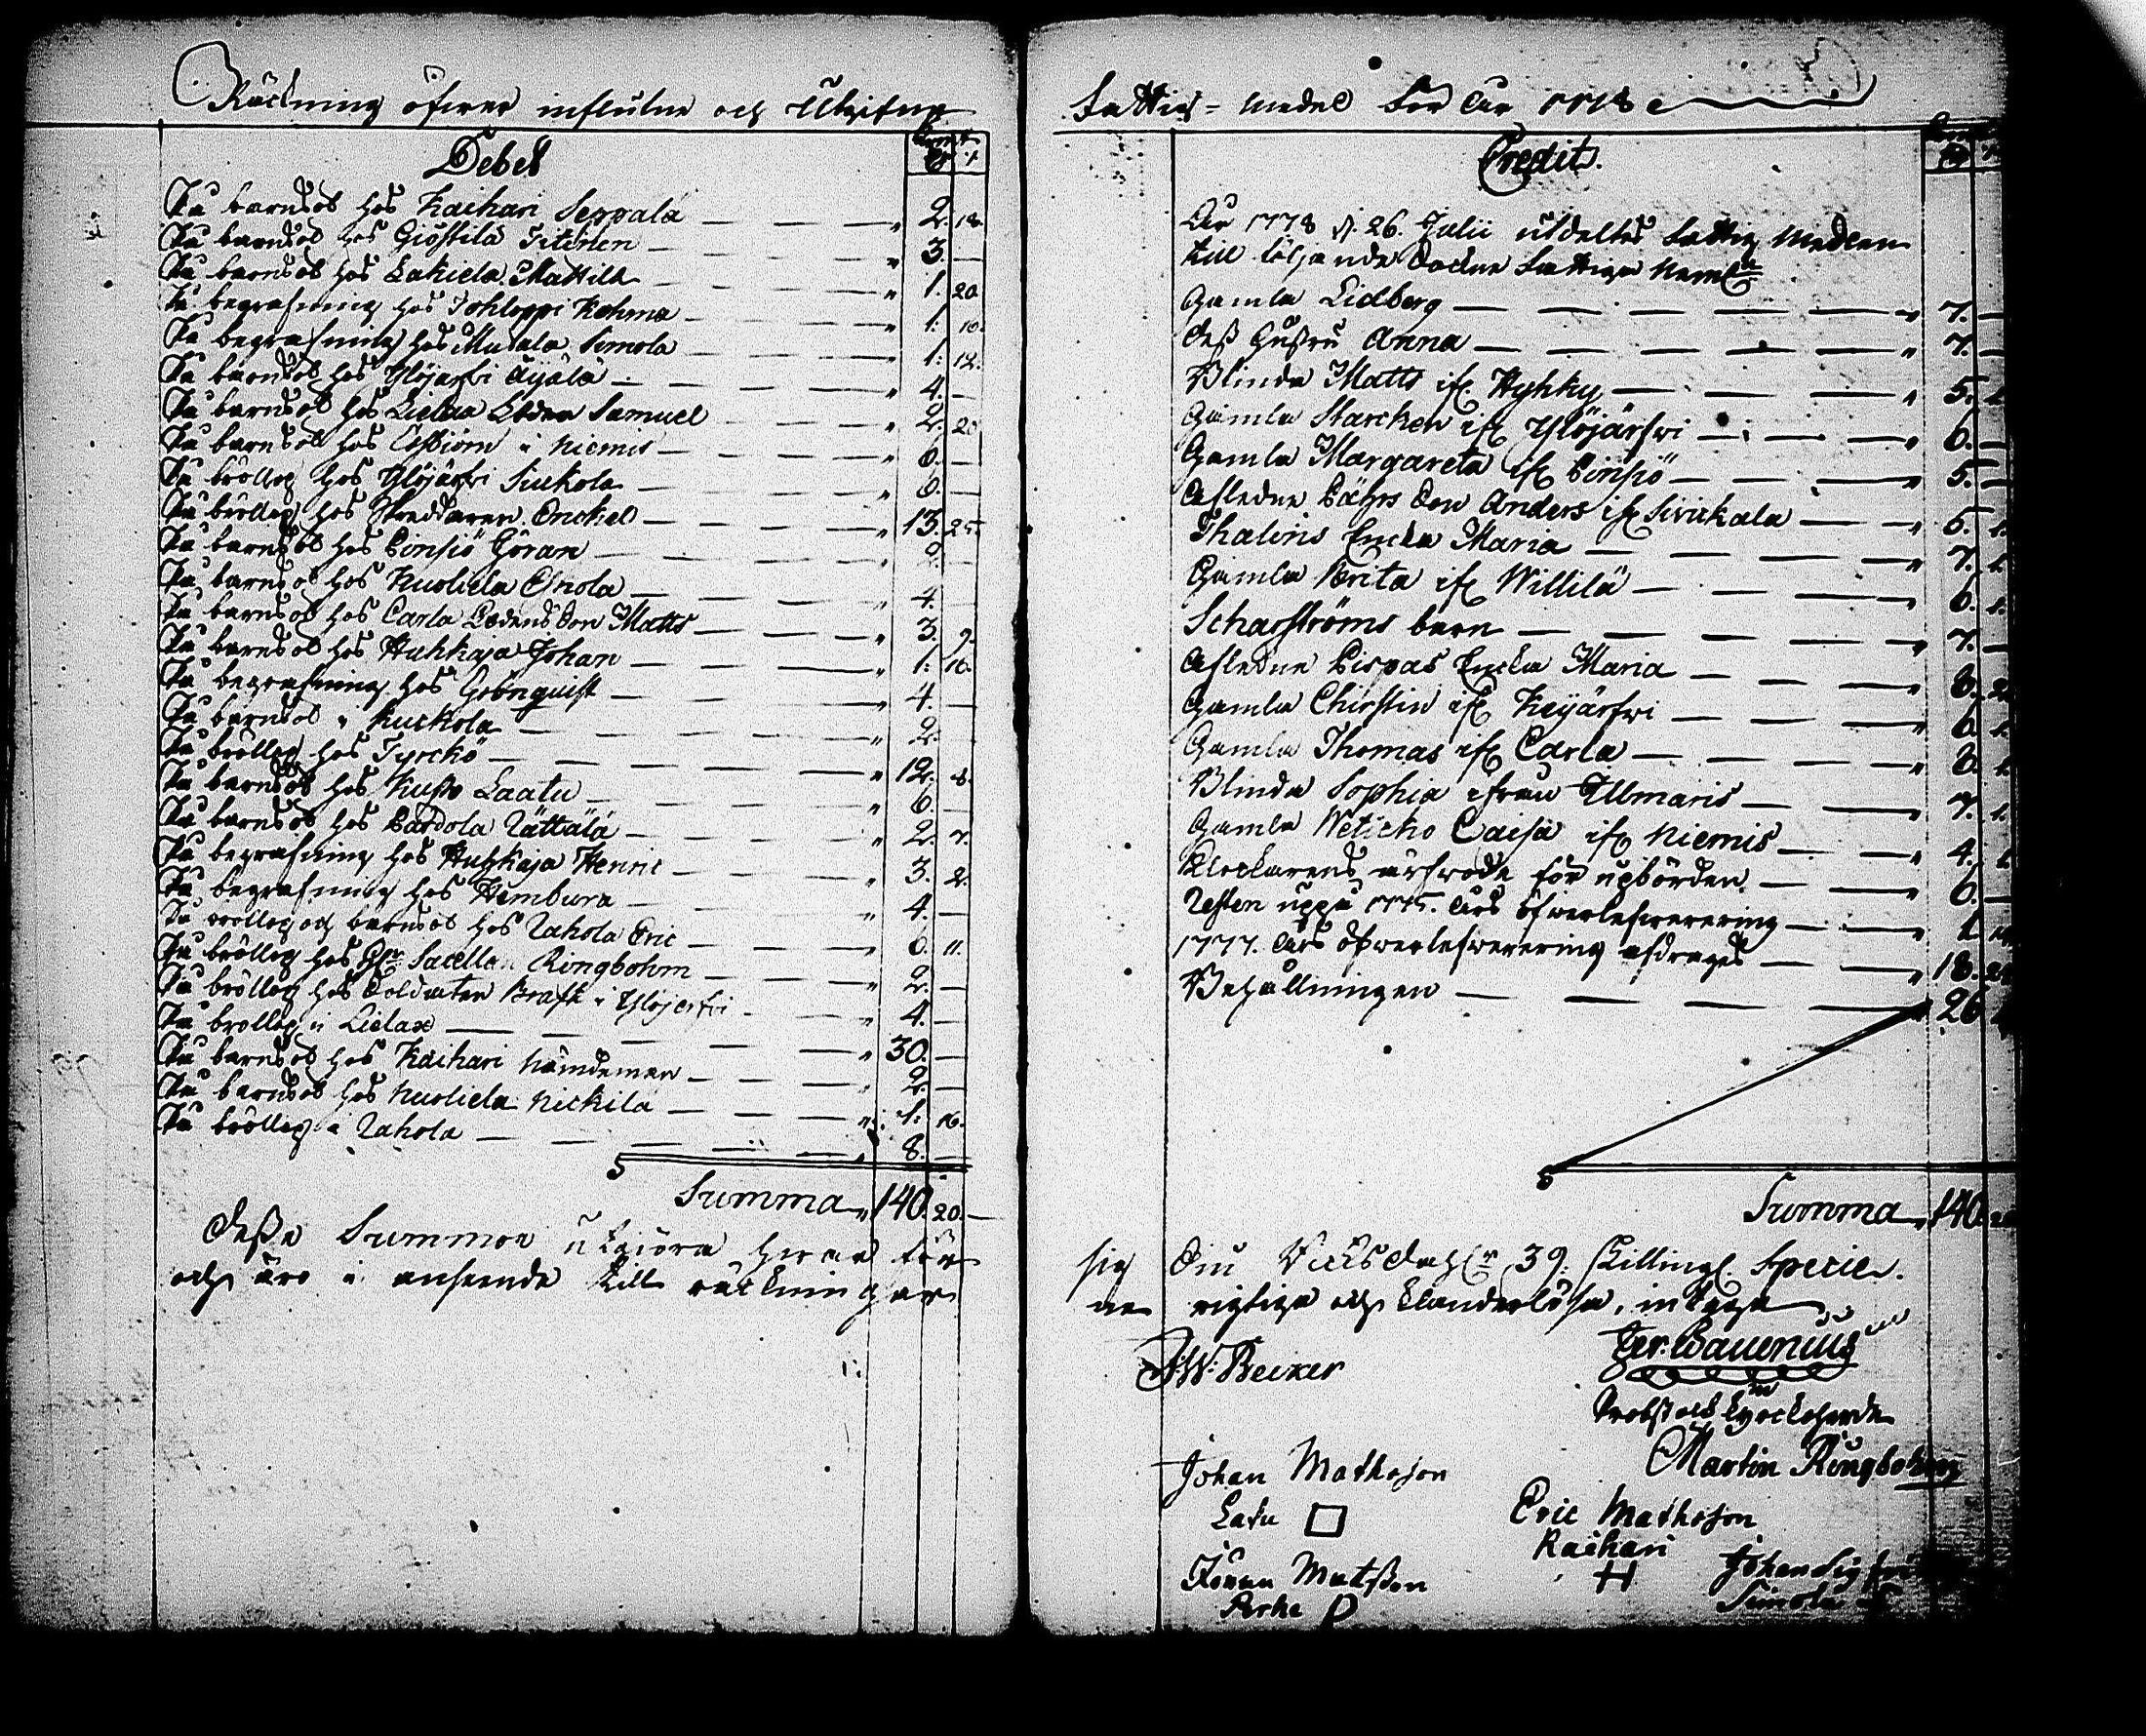 Räckning öfwer influtne och Utgifne
Debet
På barnsöl hos Kaihari Seppälä 2. 18.
På barnsöl hos Giöstilä Titinen 3. —
På barnsöl hos Lakiela Mattila 1. 20
På begrafning hos Tohloppi Kohma 1: 10.
På begrafning hos Mutala Simola 1: 12.
På barnsöl hos Ylöjärfwi Äijälä 4. —
På barnsöl hos Lielax Samuel 2. 20
På barnsöl hos i Niemis 6. —
På bröllop hos Ylöjärfwi Siukola 6. —
På bröllop hos Skreddaren Onckel 13. 25.
På barnsöl hos Pinsiö Göran 2. —
På barnsöl hos Kuoliela Esnola 4. —
På barnsöl hos Carla Matts 3. 9.
På barnsöl hos Huhkaja Johan 1: 16.
På begrafning hos Grönquist 4. —
På barnsöl i Kuckola 2. —
På bröllop hos Tyrckö 12. 8.
På barnsöl hos Laatu 6. —
På barnsöl hos Pardola Rättälä 2. 7.
På begrafning hos Huhkaja Henric 3. 2.
På begrafning hos Hembura 4. —
På bröllop och barnsöl hos Rahola Eric 6. 11.
På bröllop hos Hr Sacellan Ringbohm 2. —
På bröllop hos Soldaten Brask i Ylöjerfwi 4. —
På bröllop i Lielax 30. —
På barnsöl hos Kaihari Nämdeman 2. —
På barnsöl hos Nuoliela Nickilä 1: 16.
På bröllop i Rahola 8. —
Summa 140. 20. —
Desse Summor utgiöra hwar för
och äro i anseende till räckningar
Fattig-Medel för åhr 1778
Credit.
År 1778 d. 26. Julii utdeltes Fattig Medlen
till följande Sockne Fattige Neml.
Gamla Lidberg 7. —
Dess Hustru Anna 7. —
Blinda Matts ifr. Hyhky 5.
Gamla Starcken ifr. Ylöjärfwi 6. —
Gamla Margareta ifr. Pinsiö 5. —
Afledne Son Anders ifr. Siwickala 5.
Thalens Encka Maria 7.
Gamla Brita ifr. Willilä 6.
Scharströms barn 7. —
Afledne Pispas Encka Maria 8.
Gamla Christin ifr. Keijärfwi 6.
Gamla Thomas ifr. Carla 8.
Blinda Sophia ifrån Ullmaris 7.
Gamla Weticko Caisa ifr. Niemis 4.
Klockarens arfwode för upbörden 6. —
Resten uppå 1775. års öfwerlefwerering 1.
1777. års öfwerlefwerering afdrages 18.
Behållningen 26
Summa 140.
sig Siu Riksdahlr 39: Skilling Specie.
ne rigtige och klanderlösa, intyga
J W: Becker
Ger. Bauenius
Probst och Kyrckoherde
Martin Ringbohm
Johan Mathsson
Latu
Eric Mathsson
Kaihari
H
Göran Matsson
Perhe P
Johan Sig
Simola